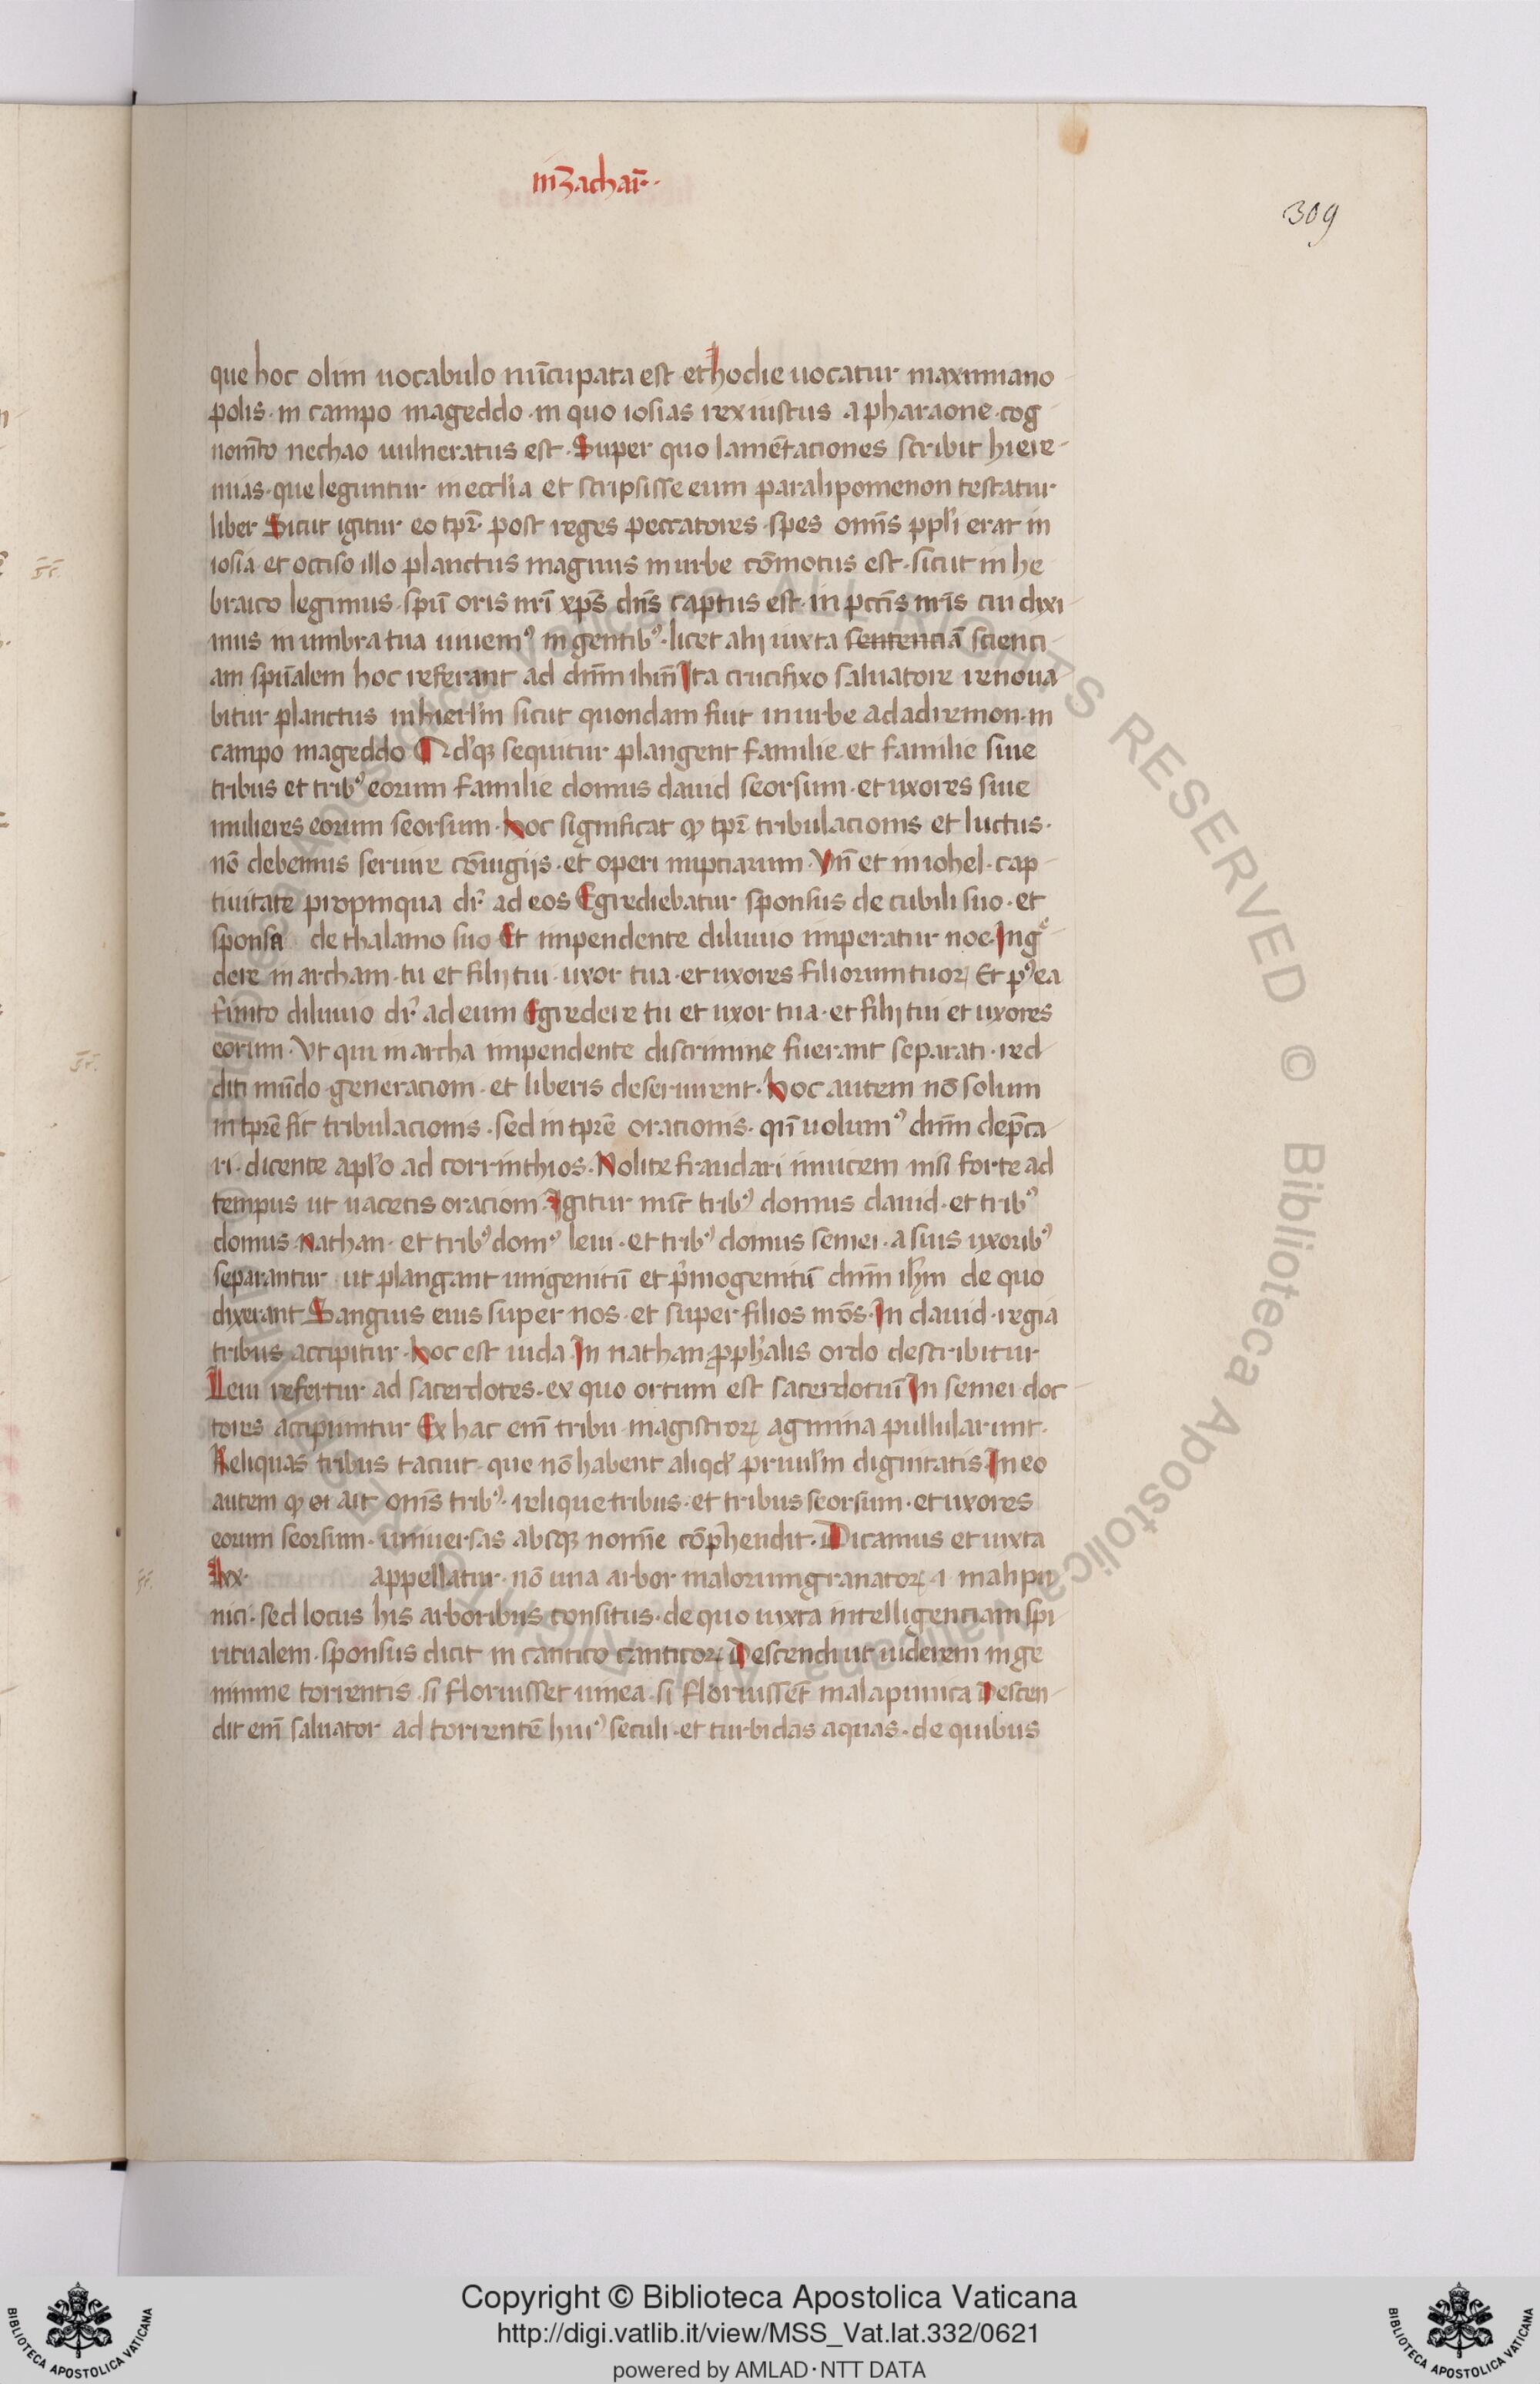 in zachar̄·
309
que hoc olim uocabulo nūcupata est et hodie uocatur maximiano
polis · in campo mageddo · in quo iosias rex iustus a pharaone · cog
nom̄to nechao uulneratus est · Super quo lamētaciones scribit hiere
mias · que leguntur in ecclīa et scripsisse eum paralipomenon testatur
liber Sicut igitur eo tpr̄ post reges peccatores · spes om̄s ppl̄i erat in
iosia et occiso illo planctus magnus in urbe cōmotus est · sicut in he
braico legimus · spūs oris nr̄i xp̄s dn̄s captus est · in pccīs nr̄is cui dixi
mus in umbra tua uiuem⁹ in gentib⁹ · licet alij iuxta sentenciā scienci
am spūalem hoc referant ad dn̄m ihm̄ Ita crucifixo saluatore renoua
bitur planctus in hierl̄m sicut quondam fuit in urbe adadremon · in
campo mageddo Id'qꝫ sequitur plangent familie et familie siue
tribus et trib⁹ eorum familie domus dauid seorsum · et uxores siue
mulieres eorum seorsum · hoc significat ꝙ tpr̄ tribulacionis et luctus ·
nō debemus seruire cōiugijs · et operi nupciarum · Vn̄ et in iohel · cap
tiuitate propinqua dr̄ ad eos Egrediebatur sponsus de cubili suo · et
sponsa de thalamo suo Et impendente diluuio imperatur noe · Ingᵉ
dere in archam · tu et filij tui · uxor tua · et uxores filiorum tuoꝝ Et p⁹ea
finito diluuio dr̄ ad eum Egredere tu et uxor tua · et filij tui et uxores
eorum · Vt qui in archa impendente discrimine fuerant separati · red
diti mūdo generacioni · et liberis deseruirent · hoc autem nō solum
in tpr̄e fit tribulacionis · sed in tpr̄e oracionis · qn̄ uolum⁹ dn̄m dep̄ca
ri · dicente apl̄o ad corrinthios · Nolite fraudari inuicem nisi forte ad
tempus ut uacetis oracioni · Igitur nūc trib⁹ domus dauid · et trib⁹
domus nathan · et trib⁹ dom⁹ leui · et trib⁹ domus semei · a suis uxorib⁹
separantur ut plangant unigenitū et p̄mogenitū dn̄m ih̄m de quo
dixerant Sanguis eius super nos · et super filios nrōs · In dauid · regia
tribus accipitur · hoc est iuda · In nathan pph̄alis ordo describitur
Leui refertur ad sacerdotes · ex quo ortum est sacerdotiū In semei doc
tores accipiuntur Ex hac em̄ tribu magistroꝝ agmina pullularunt ·
Reliquas tribus tacuit · que nō habent aliqd' priuil̄m dignitatis · In eo
autem ꝙ ait om̄s trib⁹ · relique tribus · et tribus seorsum · et uxores
eorum seorsum · uniuersas absqꝫ nomīe cōphendit · Dicamus et iuxta
lxx · appellatur · nō una arbor malorumgranatoꝝ · i · mali pu
nici · sed locus his arboribus consitus · de quo iuxta intelligenciam spi
ritualem · sponsus dicit in cantico canticoꝝ Descendi ut uiderem in ge
nimine torrentis · si floruisset uinea · si floruissēt mala punica Descen
dit em̄ saluator ad torrentē hui⁹ seculi · et turbidas aquas · de quibus
ALL RIGHTS RESERVED © Biblioteca Apostolica Vaticana
Copyright © Biblioteca Apostolica Vaticana
http://digi.vatlib.it/view/MSS_Vat.lat.332/0621
powered by AMLAD·NTT DATA
BIBLIOTECA APOSTOLICA VATICANA
BIBLIOTECA APOSTOLICA VATICANA